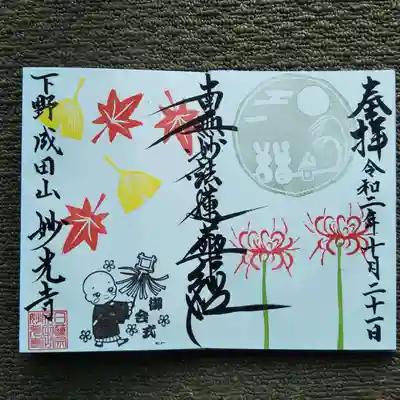 奉拝
令和二年十月二十一日
南無妙法蓮華経
御会式
下野成田山
妙光寺